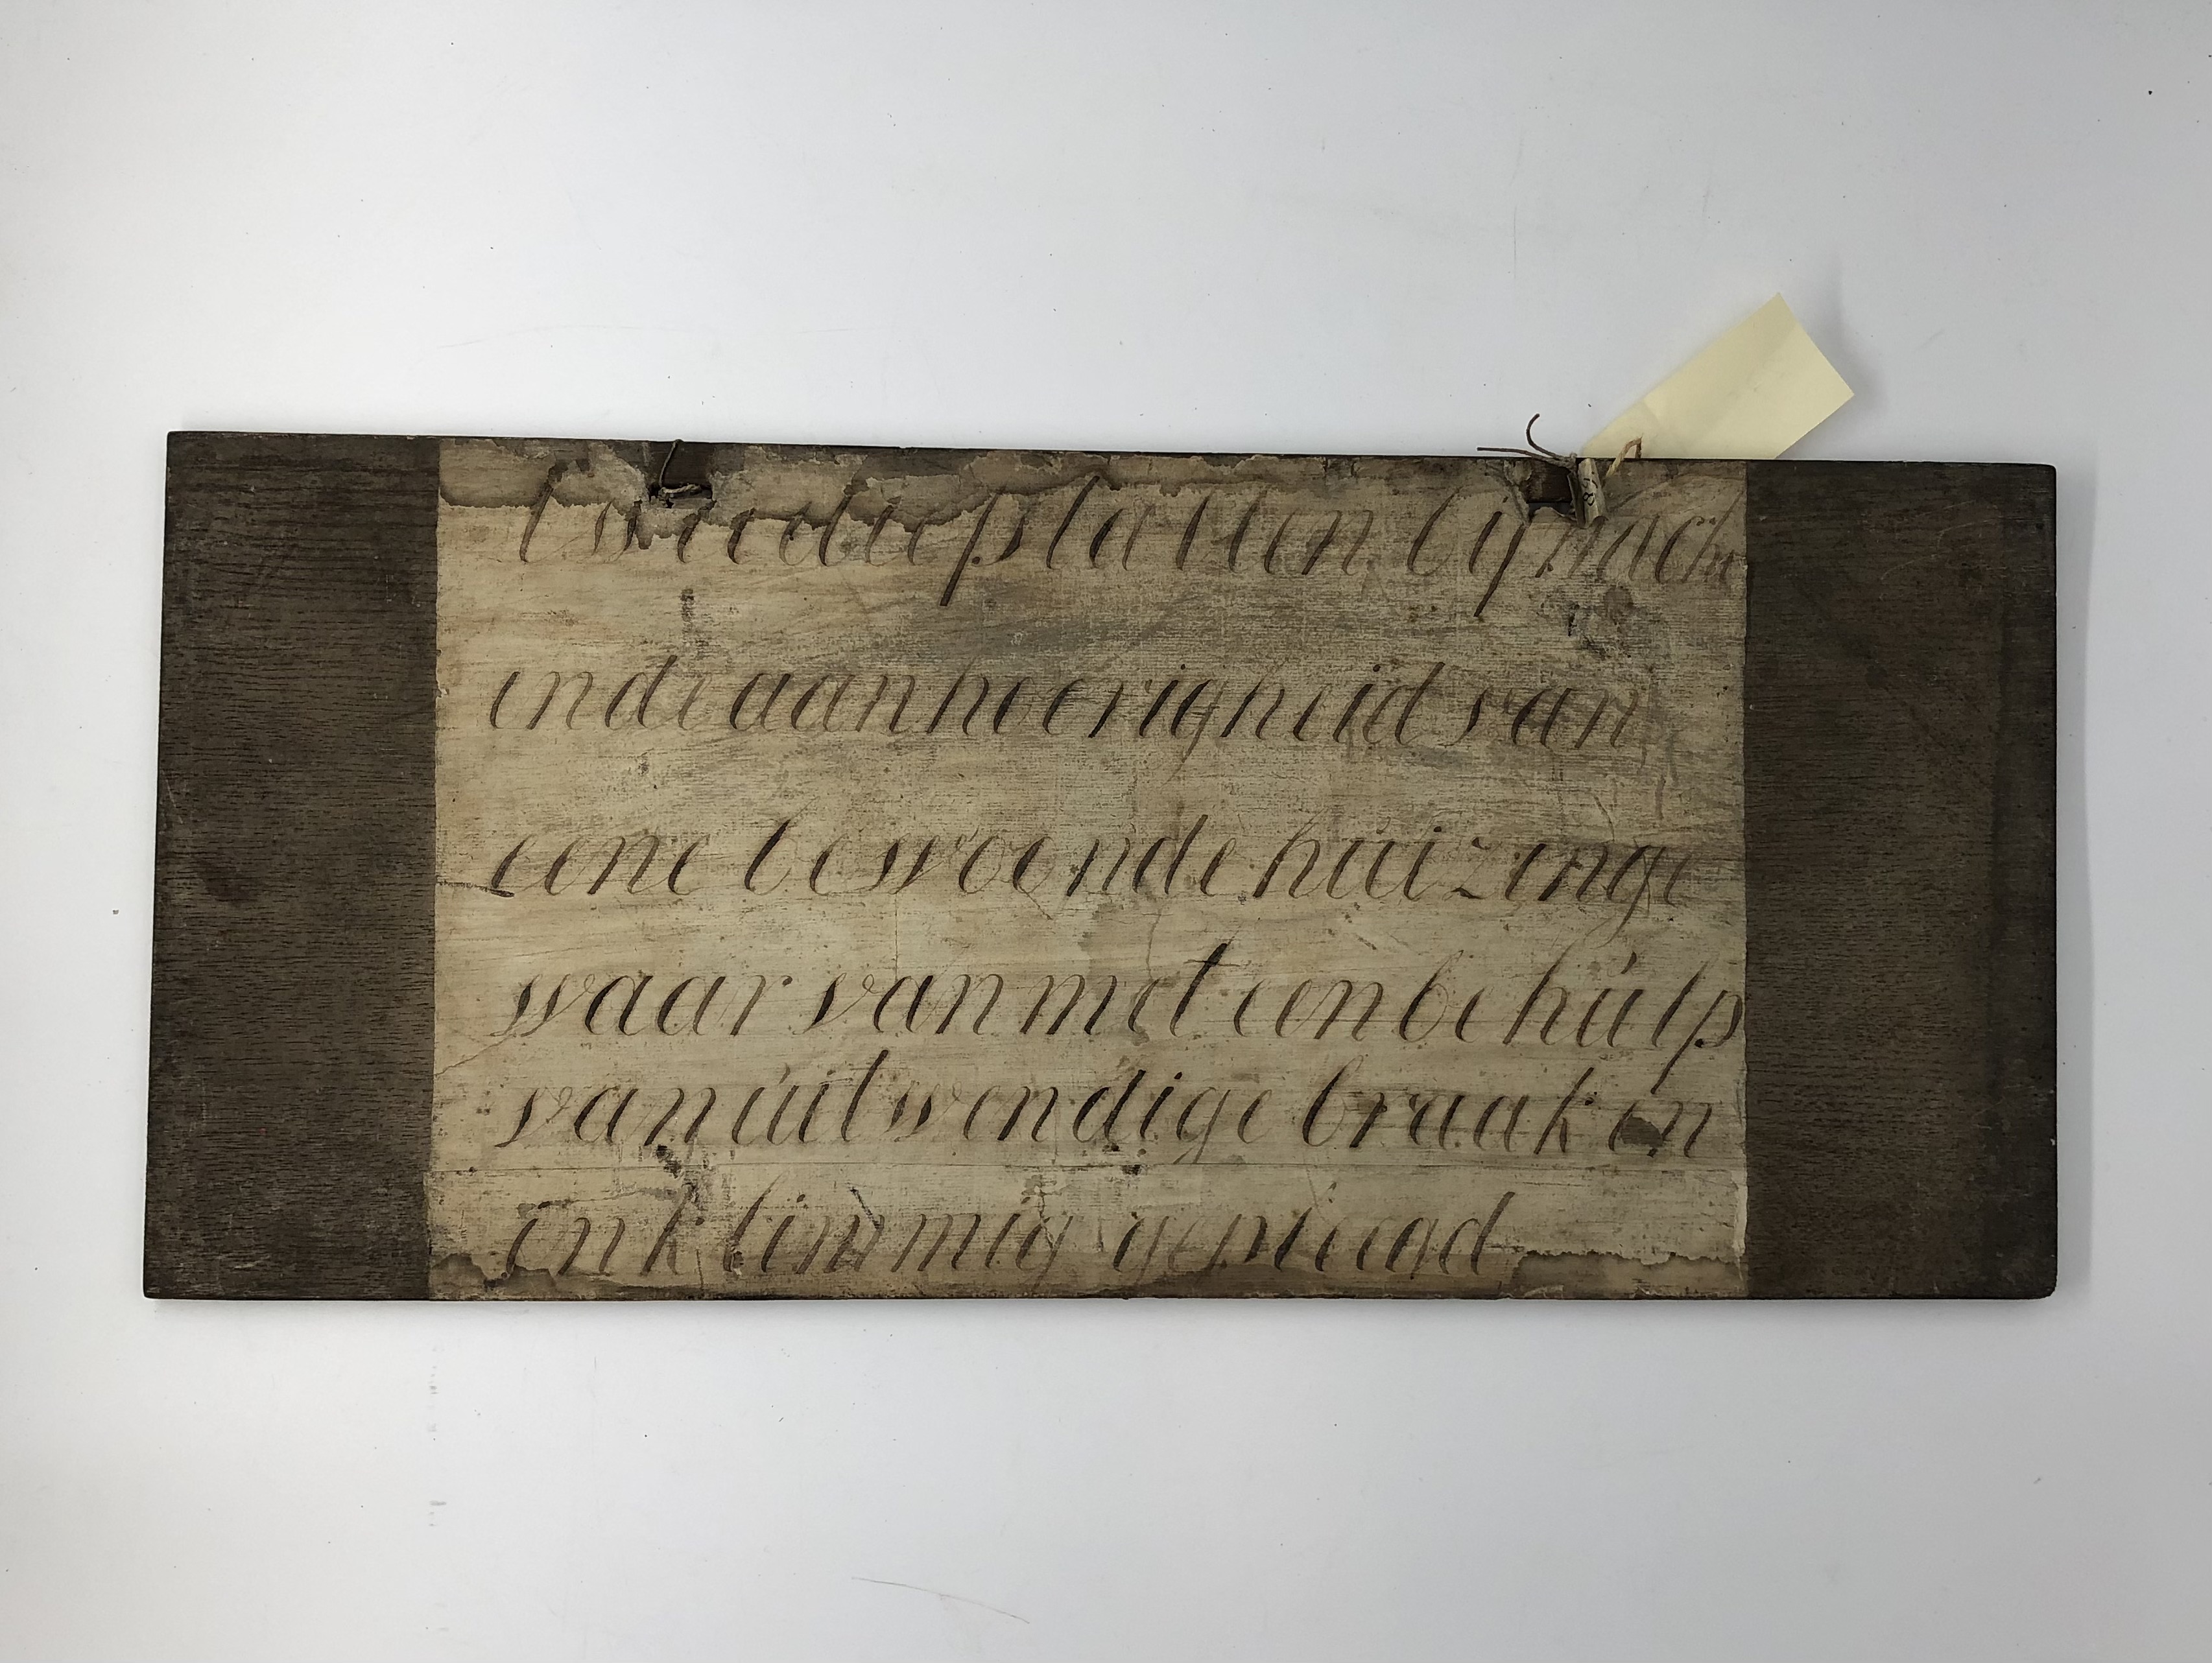 twee diepstallen bij nacht
in de aanhoerigheid van
eene bewoonde huizinge
waar van met een behulp
van uitwendige braak en
inklimmig gepleegd